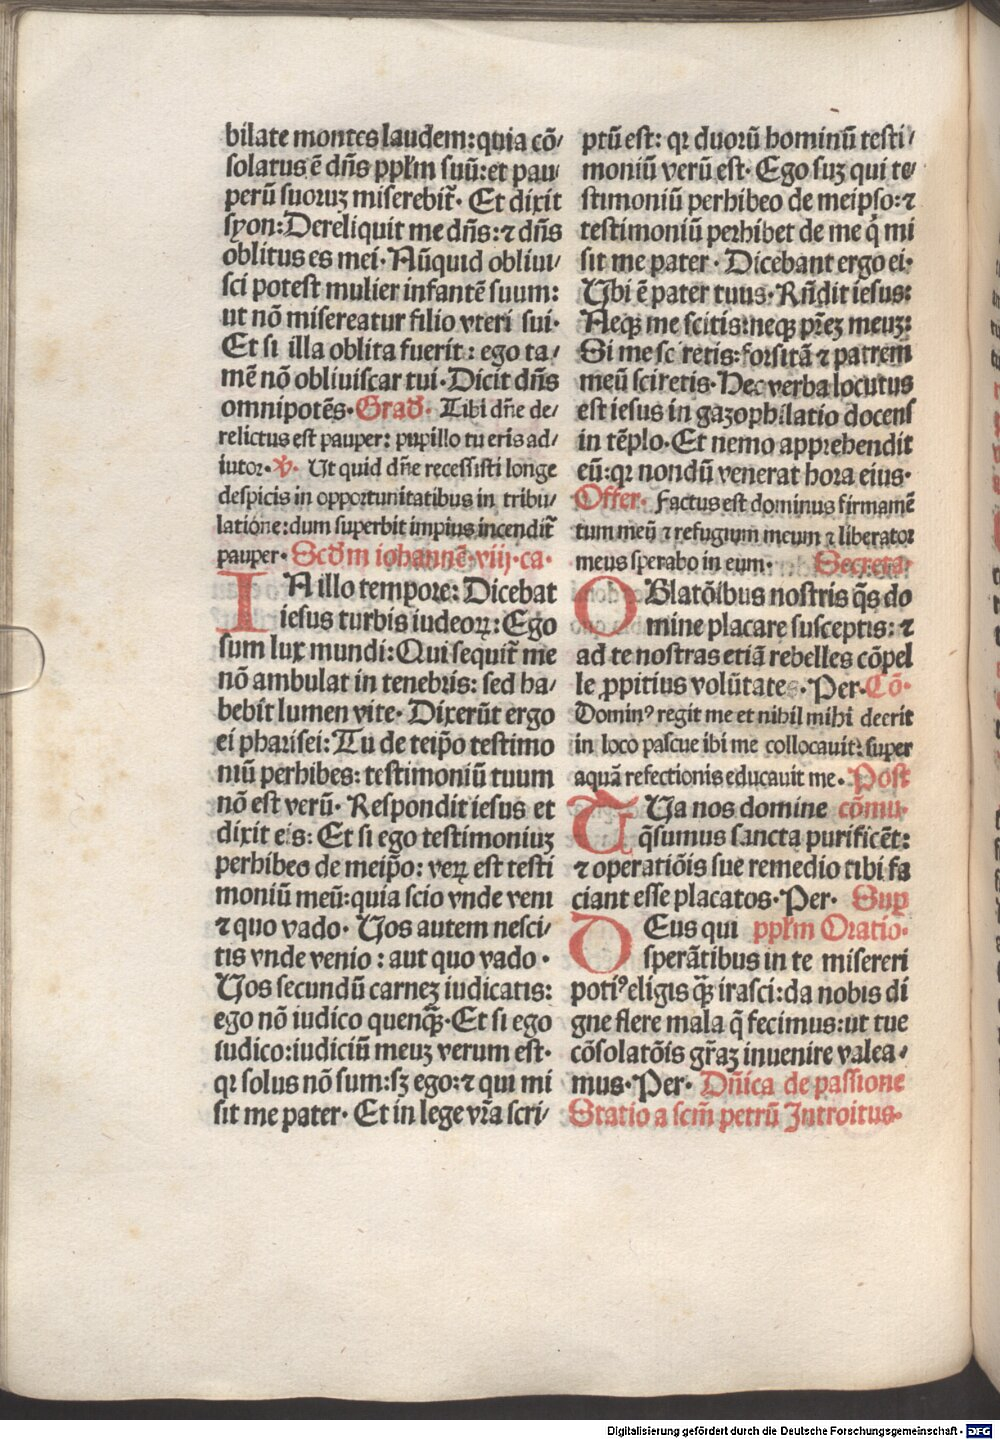 bilate montes laudem: quia cõ/
solatus ẽ dñs ppłm suũ: et pau/
perũ suoruʒ miserebit᷑. Et dixit
syon: Dereliquit me dñs: ⁊ dñs
oblitus es mei. Nũquid obliui/
sci potest mulier infantẽ suum:
ut nõ misereatur filio vteri sui.
Et si illa oblita fuerit: ego ta/
mẽ nõ obliuiscar tui. Dicit dñs
omnipotẽs. Grad̃. Tibi dñe de/
relictus est pauper: pupillo tu eris ad/
iutor. v̾. Ut quid dñe recessisti longe
despicis in opportunitatibus in tribu/
latione: dum superbit impius incendit᷑
pauper. Scd̃m iohannẽ. viij. ca.
IN illo tempore: Dicebat
iesus turbis iudeoꝝ: Ego
sum lux mundi: Qui sequit᷑ me
nõ ambulat in tenebris: sed ha/
bebit lumen vite. Dixerũt ergo
ei pharisei: Tu de teip̃o testimo
niũ perhibes: testimoniũ tuum
nõ est verũ. Respondit iesus et
dixit eis: Et si ego testimoniuʒ
perhibeo de meip̃o: veꝝ est testi
moniũ meũ: quia scio vnde veni
⁊ quo vado. Vos autem nesci/
tis vnde venio: aut quo vado.
Vos secundũ carneʒ iudicatis:
ego nõ iudico quenq̃. Et si ego
iudico: iudiciũ meuʒ verum est.
qꝛ solus nõ sum: sʒ ego: ⁊ qui mi
sit me pater. Et in lege vr̃a scri/
ptũ est: qꝛ duorũ hominũ testi/
moniũ verũ est. Ego suʒ qui te/
stimoniũ perhibeo de meipso: ⁊
testimoniũ perhibet de me q̇ mi
sit me pater. Dicebant ergo ei.
Vbi ẽ pater tuus. Rñdit iesus:
Neqʒ me scitis: neqʒ pr̃eʒ meuʒ:
Si me sciretis: forsitã ⁊ patrem
meũ sciretis. Hec verba locutus
est iesus in gazophilatio docens
in tẽplo. Et nemo apprehendit
eũ: qꝛ nondũ venerat hora eius.
Offer. Factus est dominus firmamẽ
tum meũ ⁊ refugium meum ⁊ liberator
meus sperabo in eum. Secreta.
OBlatõibus nostris q̃s do
mine placare susceptis: ⁊
ad te nostras etiã rebelles cõpel
le ꝓpitius volũtates. Per. Cõ.
Dominꝰ regit me et nihil mihi deerit
in loco pascue ibi me collocauit: super
aquã refectionis educauit me. Post
TUa nos domine cõmu.
q̃sumus sancta purificẽt:
⁊ operatiõis sue remedio tibi fa
ciant esse placatos. Per. Sup
DEus qui ppłm Oratio.
sperãtibus in te misereri
potiꝰ eligis q̃ʒ irasci: da nobis di
gne flere mala q̃ fecimus: ut tue
cõsolatõis gr̃aʒ inuenire valea/
mus. Per. Dñica de passione
Statio a scm̃ petrũ Introitus.
Digitalisierung gefördert durch die Deutsche Forschungsgemeinschaft - DFG